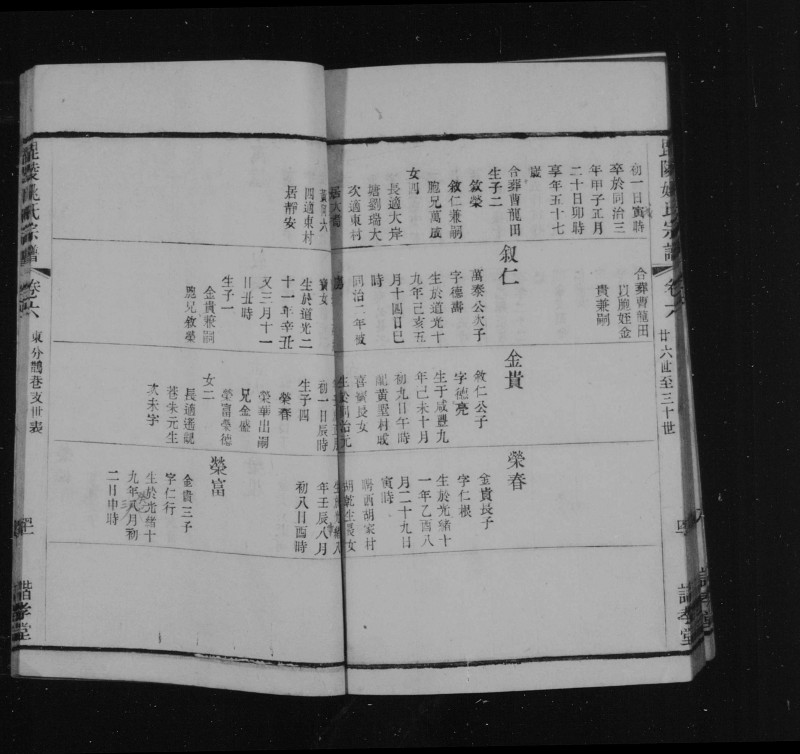 初一日寅時
卒於同治三
年甲子五月
二十日卯時
享年五十七
歲
合葬曹龍田
生子二
敘榮
敘仁兼嗣
胞兄萬成
女四
長適大岸
塘劉瑞大
次適東村
四適東村
居靜安
合葬曹龍田
以胞姪金
貴兼嗣
敘仁
萬泰公次子
字德壽
生於道光十
九年己亥五
月十四日巳
時
同治二年歿
生於道光二
十一年辛丑
又三月十一
日丑時
生子一
金貴兼嗣
胞兄敘榮
金貴
敘仁公子
字德亮
生于咸豐九
年己未十月
初九日午時
配黃墅村戚
喜斌長女
生於同治元
初一日辰時
生子四
榮春
榮華出嗣
兄金盛
榮富 榮德
女二
長適逍觀
巷朱元生
次未字
榮春
金貴長子
字仁根
生於光緒十
一年乙酉八
月二十九日
寅時
聘西胡家村
胡乾生長女
年壬辰八月
初八日酉時
榮富
金貴三子
字仁行
生於光緒十
九年八月初
二日申時
毘陵姚氏宗譜
卷六
廿六世至三十世
諧孝堂
毘陵姚氏宗譜
卷六
東分鵲巷支世表
諧孝堂